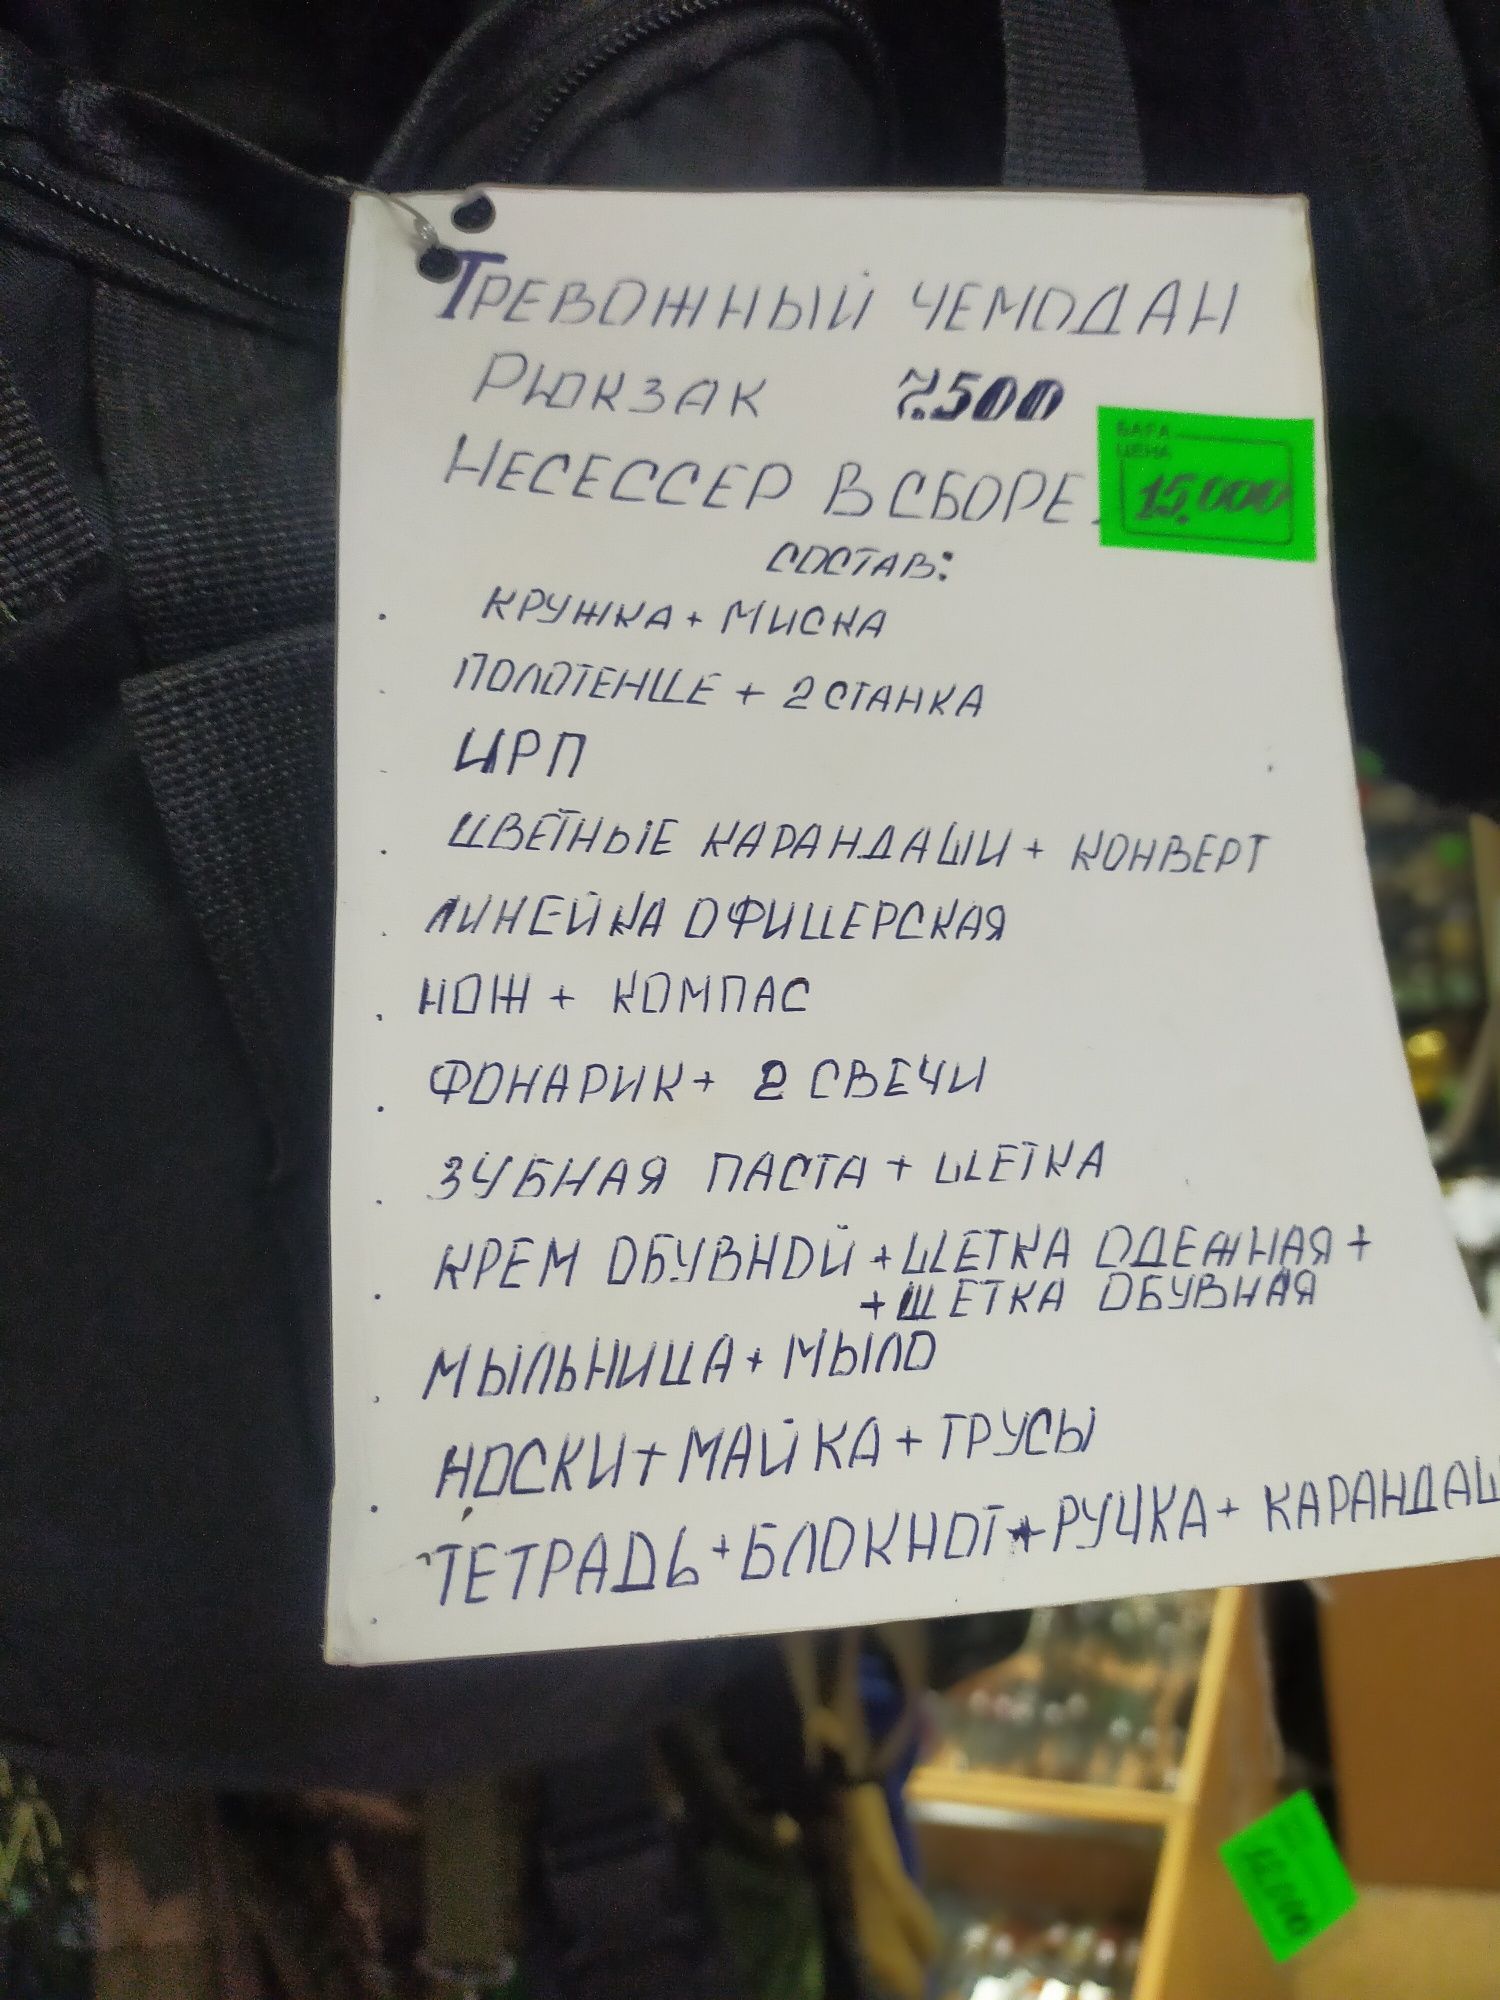 Тревожный чемодан
Рюкзак 7.500
Несессер в сборе.
БАҒА
ЦЕНА
15.000
состав:
. кружка + миска
. полотенце + 2 станка
. ИРП
. цветные карандаши + конверт
. линейка офицерская
. нож + компас
. фонарик + 2 свечи
. зубная паста + щетка
. крем обувной + щетка одежная +
+ щетка обувная
. мыльница + мыло
. носки + майка + трусы
. тетрадь + блокнот + ручка + карандаш